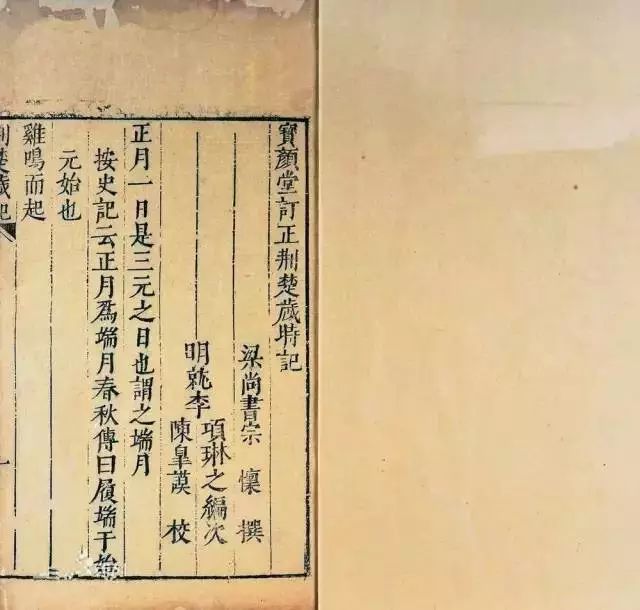 寶顏堂訂正荆楚歲時記
梁尚書宗懔撰
明檇李
項琳之編次
陳臯謨校
正月一日是三元之日也謂之端月
按史記云正月爲端月春秋傳曰履端于始
元始也
雞鳴而起
荆楚歲記
一